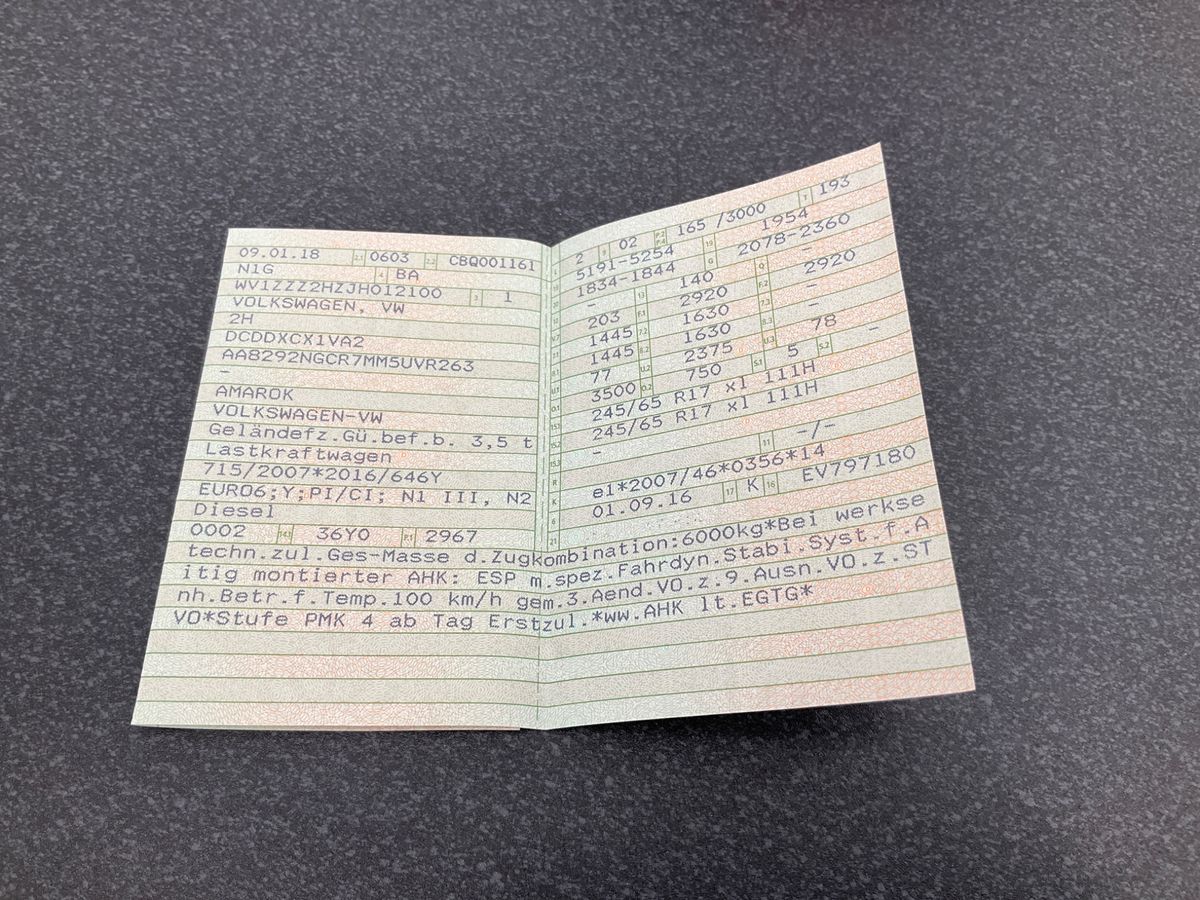 09.01.18 2.1 0603 2.2 CBQ001161
N1G 4 BA
WV1ZZZ2HZJH012100 3 1
VOLKSWAGEN, VW
2H
DCDDXCX1VA2
AA8292NGCR7MM5UVR263
-
AMAROK
VOLKSWAGEN-VW
Geländefz.Gü.bef.b. 3,5 t
Lastkraftwagen
715/2007*2016/646Y
EURO6;Y;PI/CI; N1 III, N2
Diesel
0002 14.1 36Y0 P.1 2967
L 2 9 02 P.2 P.4 165 /3000 T 193
18 5191-5254 19 1954
20 1834-1844 G 2078-2360
12 - 13 140 Q -
V.7 203 F.1 2920 F.2 2920
7.1 1445 7.2 1630 7.3 -
8.1 1445 8.2 1630 8.3 -
U.1 77 U.2 2375 U.3 78
O.1 3500 O.2 750 S.1 5 S.2 -
15.1 245/65 R17 xl 111H
15.2 245/65 R17 xl 111H
15.3 -
R 11 -/-
K e1*2007/46*0356*14
6 01.09.16 17 K 16 EV797180
21
techn.zul.Ges-Masse d.Zugkombination:6000kg*Bei werkse
itig montierter AHK: ESP m.spez.Fahrdyn.Stabi.Syst.f.A
nh.Betr.f.Temp.100 km/h gem.3.Aend.VO.z.9.Ausn.VO.z.ST
VO*Stufe PMK 4 ab Tag Erstzul.*ww.AHK lt.EGTG*